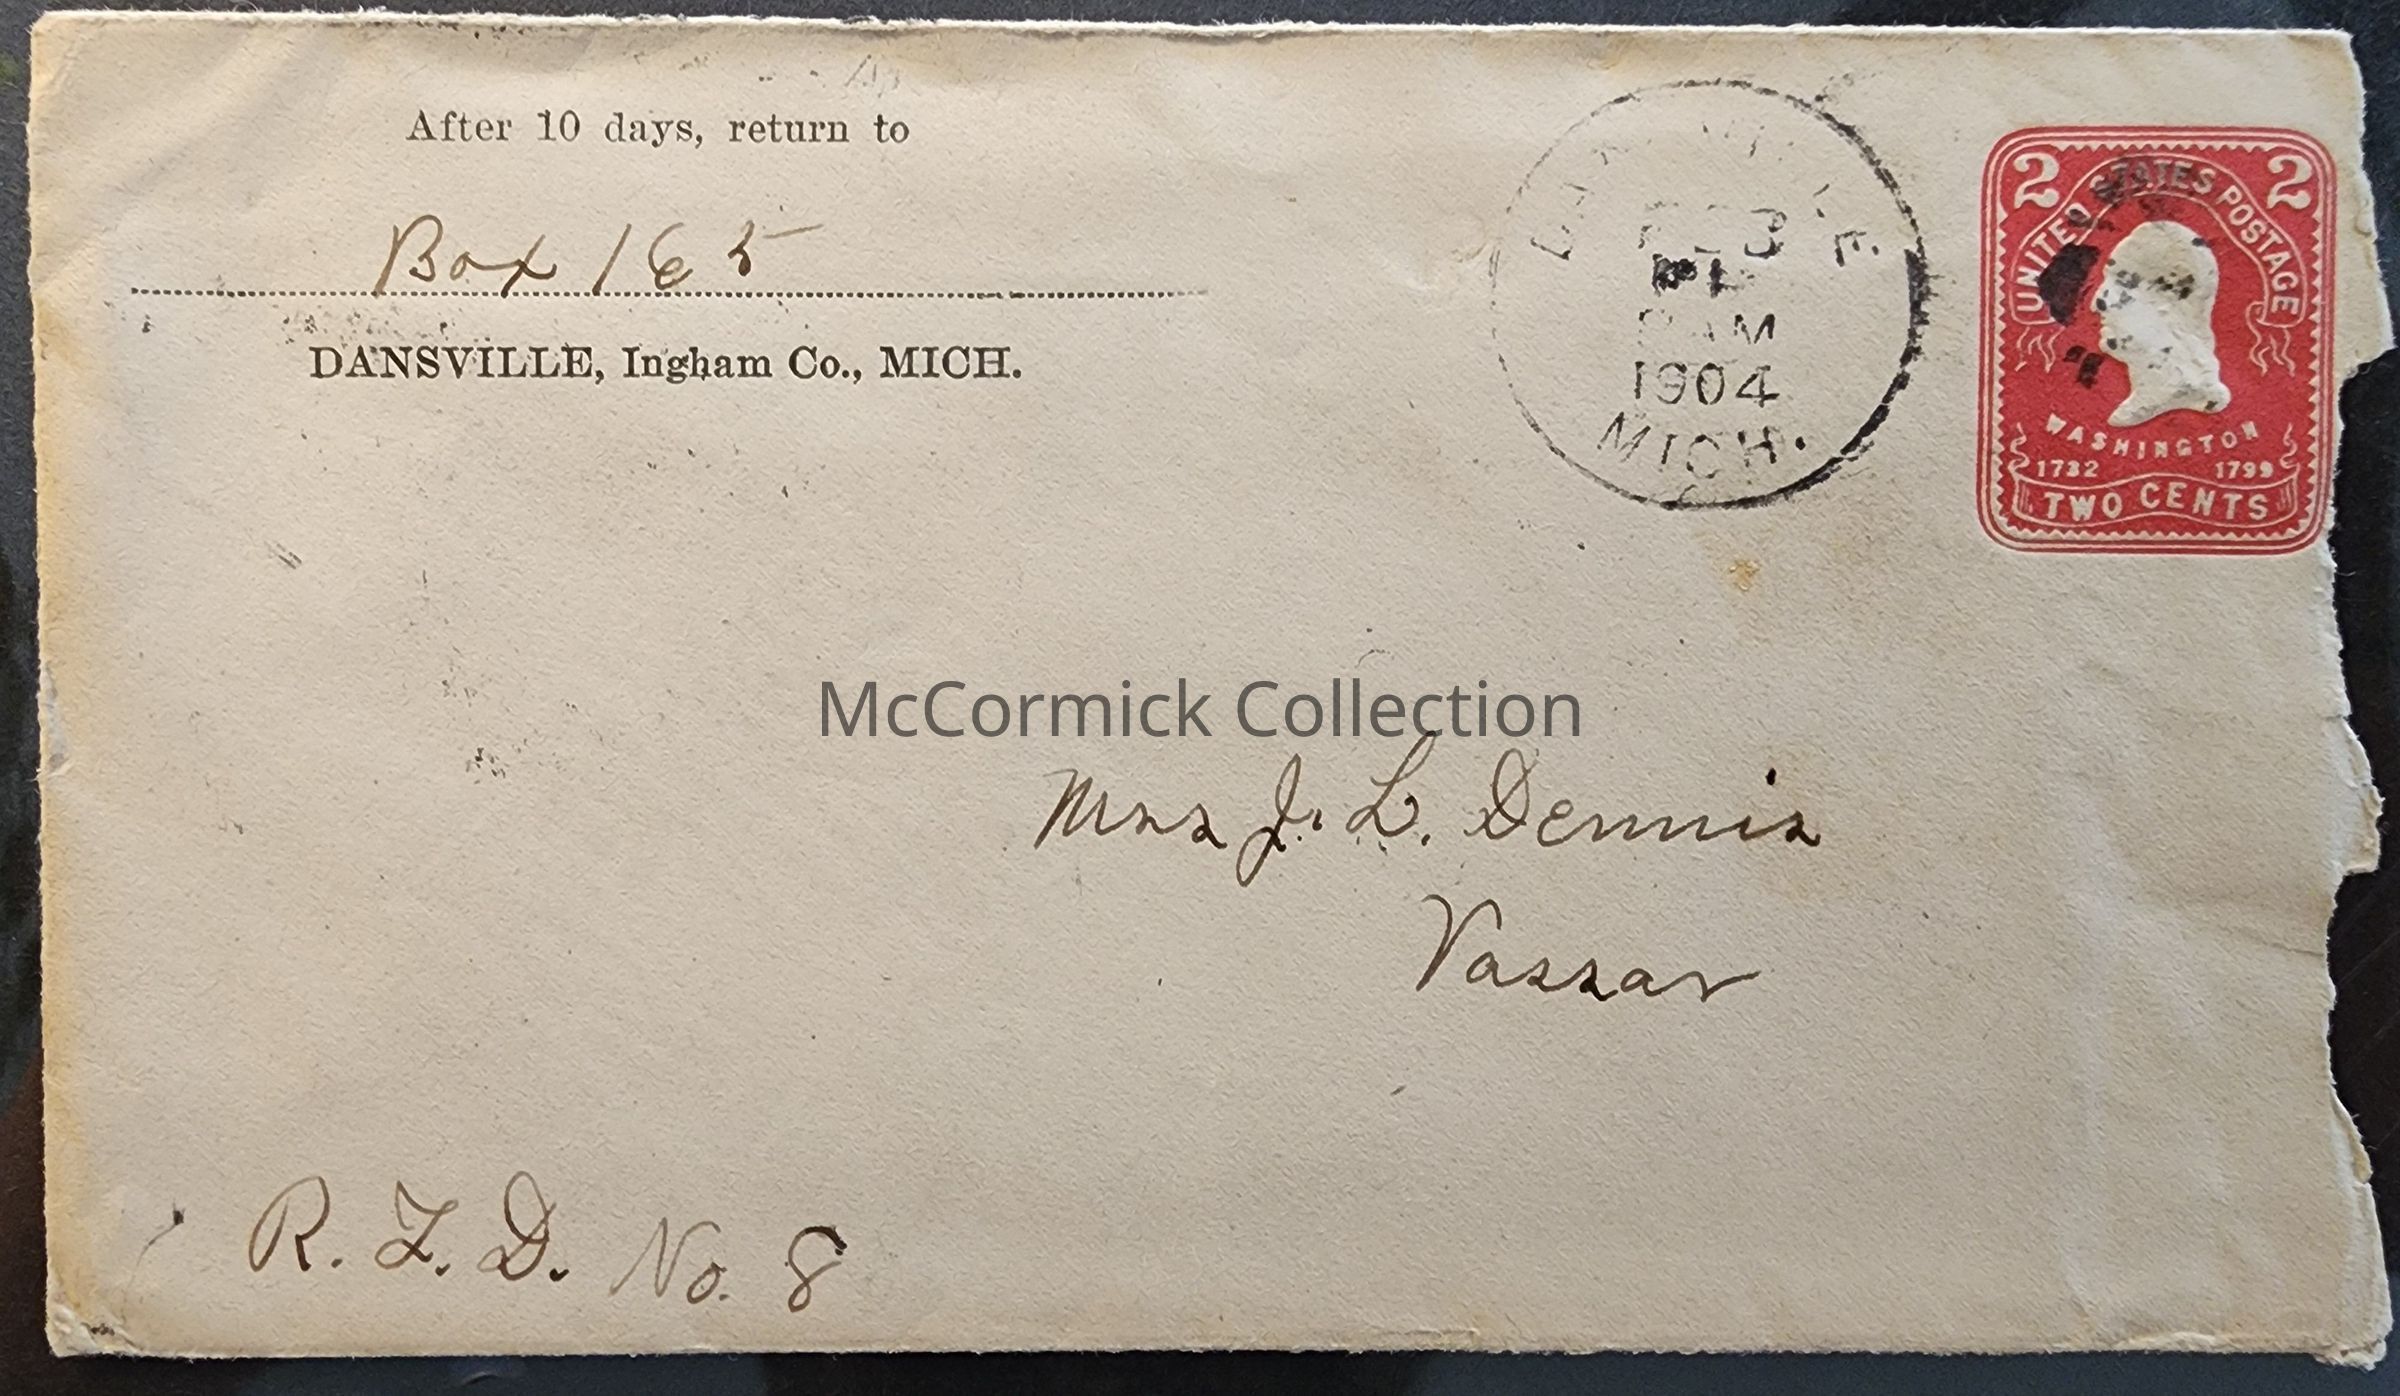 After 10 days, return to
Box 165
DANSVILLE, Ingham Co., MICH.
DANSVILLE
FEB
AM
1904
MICH.
2 2
UNITED STATES POSTAGE
WASHINGTON
1732 1799
TWO CENTS
McCormick Collection
Mrs J. L. Dennis
Vassar
R. F. D. No. 8